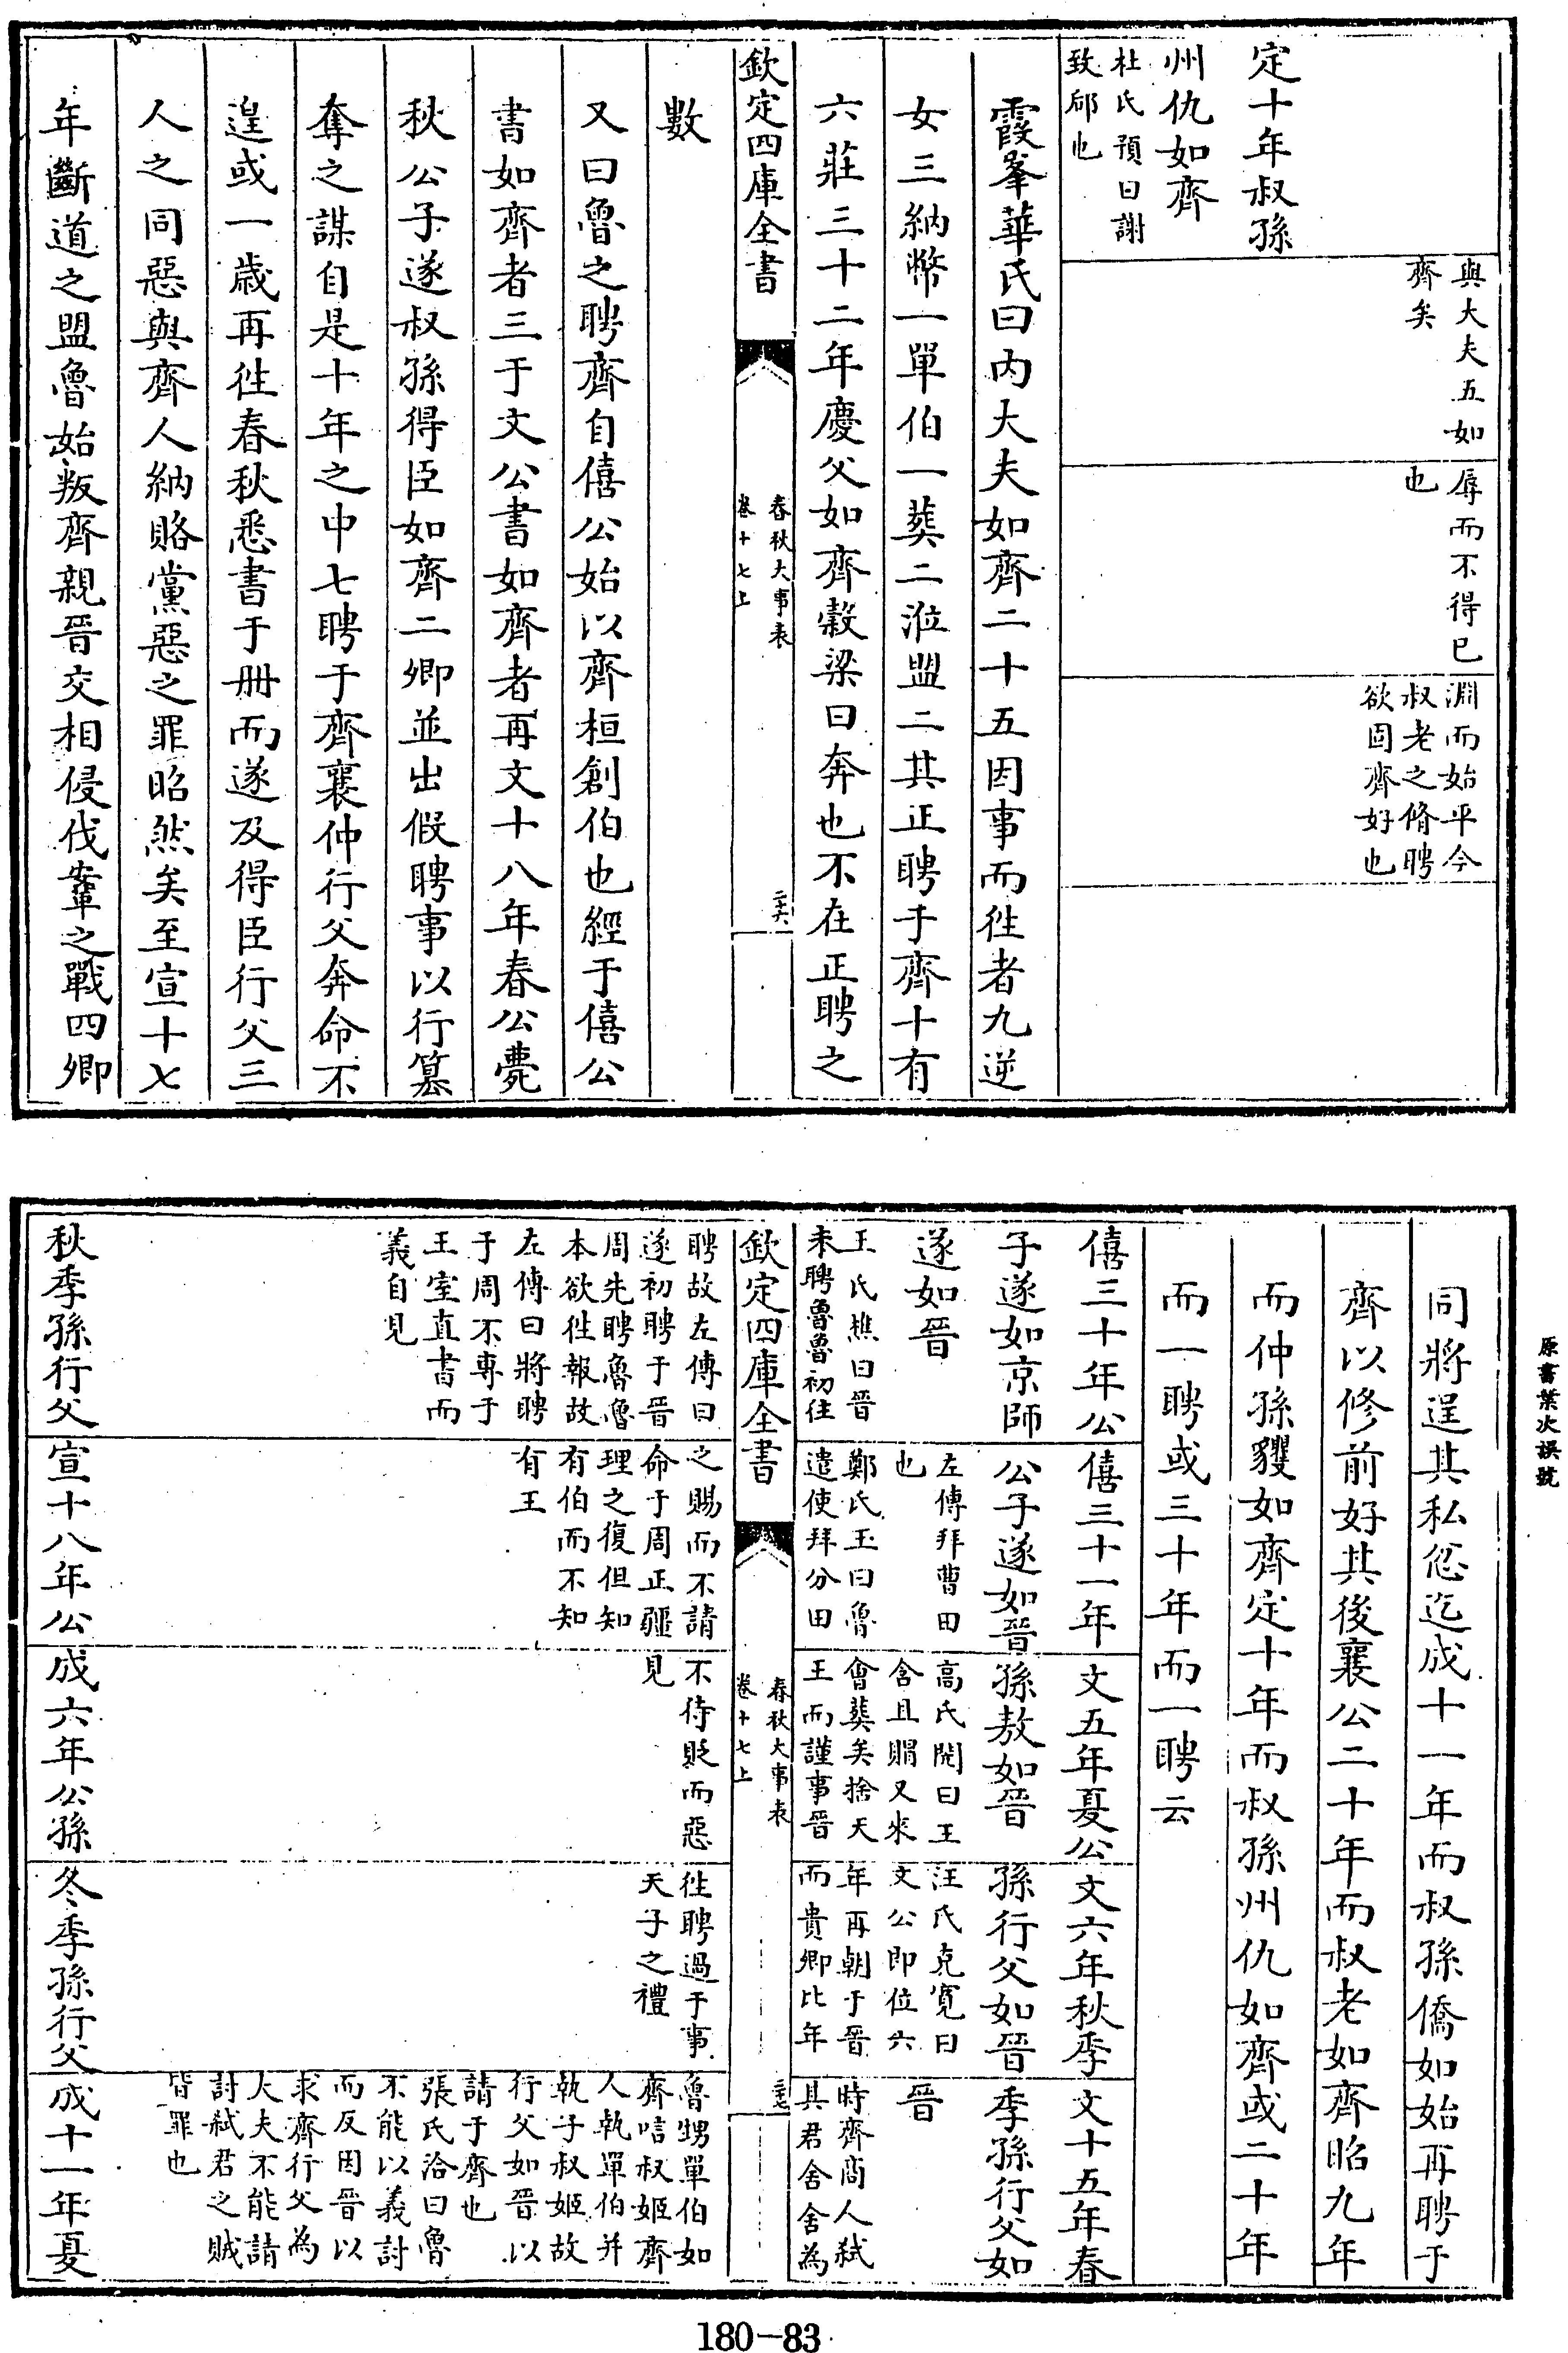 定十年叔孫
州仇如齊
杜氏預曰謝
致郈也
與大夫五如
齊矣
辱而不得已
也
淵而始平今
叔老之脩聘
欲固齊好也
霞峯華氏曰內大夫如齊二十五因事而徃者九逆
女三納幣一單伯一葬二涖盟二其正聘于齊十有
六莊三十二年慶父如齊穀梁曰奔也不在正聘之
欽定四庫全書
春秋大事表
卷十七上
數
又曰魯之聘齊自僖公始以齊桓創伯也經于僖公
書如齊者三于文公書如齊者再文十八年春公薨
秋公子遂叔孫得臣如齊二卿並出假聘事以行篡
奪之謀自是十年之中七聘于齊襄仲行父奔命不
遑或一歲再徃春秋悉書于册而遂及得臣行父三
人之同惡與齊人納賂黨惡之罪昭然矣至宣十七
年斷道之盟魯始叛齊親晉交相侵伐鞌之戰四卿
原書葉次誤號
同將逞其私忿迄成十一年而叔孫僑如始再聘于
齊以修前好其後襄公二十年而叔老如齊昭九年
而仲孫貜如齊定十年而叔孫州仇如齊或二十年
而一聘或三十年而一聘云
僖三十年公
子遂如京師
遂如晉
王氏樵曰晉
未聘魯魯初往
僖三十一年
公子遂如晉
左傳拜曹田
也
鄭氏玉曰魯
遣使拜分田
文五年夏公
孫敖如晉
高氏閌曰王
含且賵又來
會葬矣捨天
王而謹事晉
文六年秋季
孫行父如晉
汪氏克寬曰
文公即位六
年再朝于晉
而貴卿比年
文十五年春
季孫行父如
晉
時齊商人弑
其君舍舍為
欽定四庫全書
春秋大事表
卷十七上
聘故左傳曰
遂初聘于晉
周先聘魯魯
本欲徃報故
左傳曰將聘
于周不專于
王室直書而
義自見
之賜而不請
命于周正疆
理之復但知
有伯而不知
有王
不待貶而惡
見
徃聘過于事
天子之禮
魯甥單伯如
齊唁叔姬齊
人執單伯并
執子叔姬故
行父如晉以
請于齊也
張氏洽曰魯
不能以義討
而反因晉以
求齊行父為
大夫不能請
討弑君之賊
皆罪也
秋季孫行父
宣十八年公
成六年公孫
冬季孫行父
成十一年夏
180-83